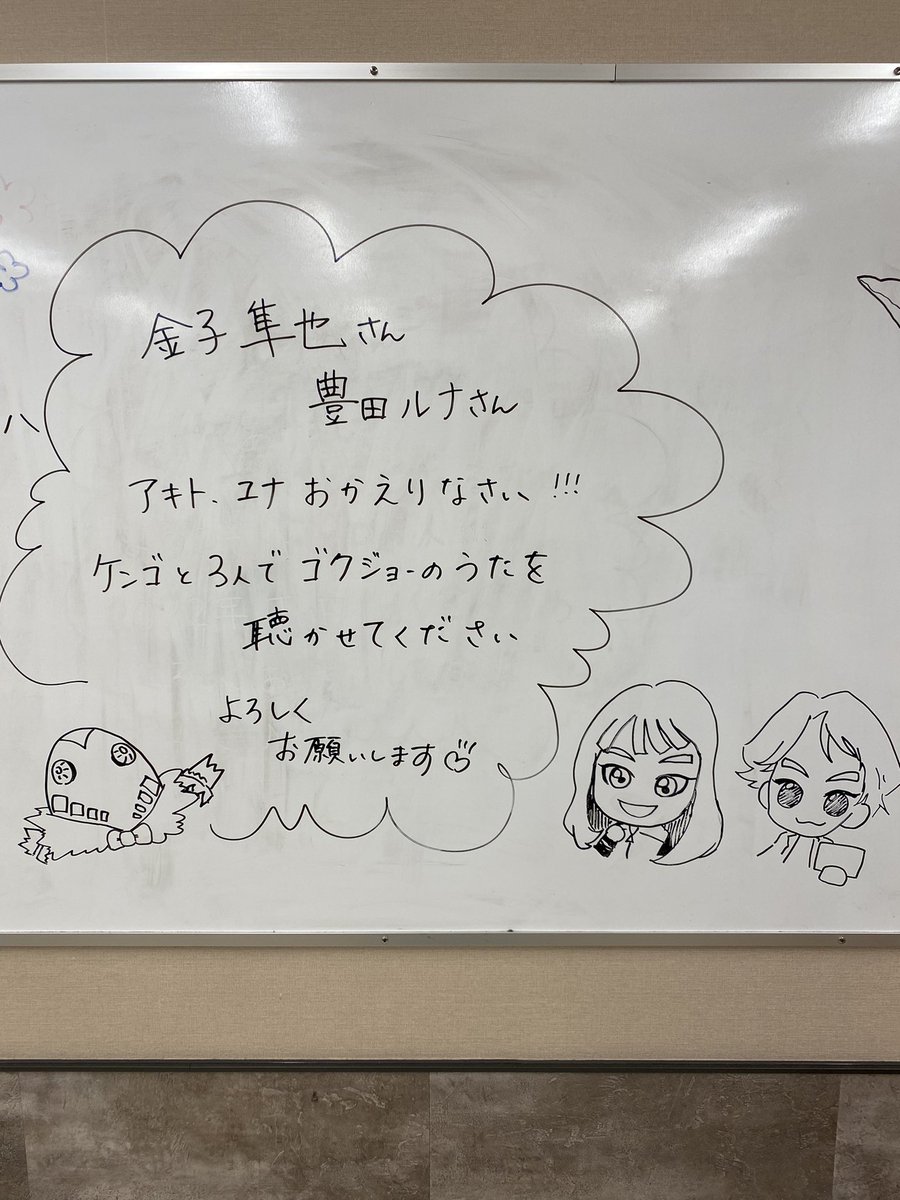 金子隼也さん
豊田ルナさん
アキト、ユナおかえりなさい!!!
ケンゴと3人でゴクジョーのうたを
聴かせてください
よろしく
お願いします♡